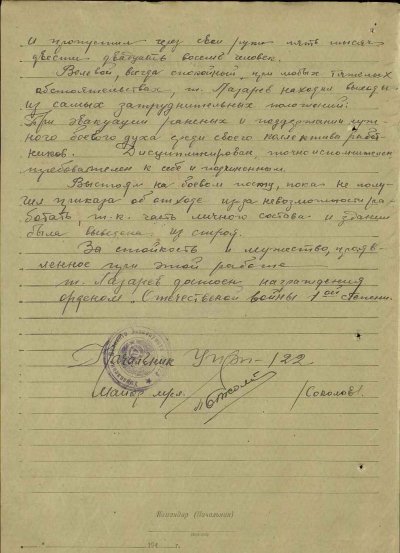 и пропустил через свои руки пять тысяч
двести двадцать восемь человек.
Волевой, всегда спокойной, при любых тяжелых
обстоятельствах, т. Лазарев находил выходы
из самых затруднительных положений.
При эвакуации раненых и поддержании нуж-
ного боевого духа среди своего коллектива работ-
ников. Дисциплинирован, точно исполнителен
требователен к себе и подчиненным.
Выстоял на боевом посту, пока не полу-
чил приказа об отходе из за невозможности ра-
ботать, т.к. часть личного состава и здании
была выведена из строя.
За стойкость и мужество, прояв-
ленное при этой работе
т. Лазарев достоин награждения
орденом "Отечественной войны 1ой степени.
Начальник УПЭП-122
Майор м/сл. /Соколов/.
Командир (Начальник)
194 г.